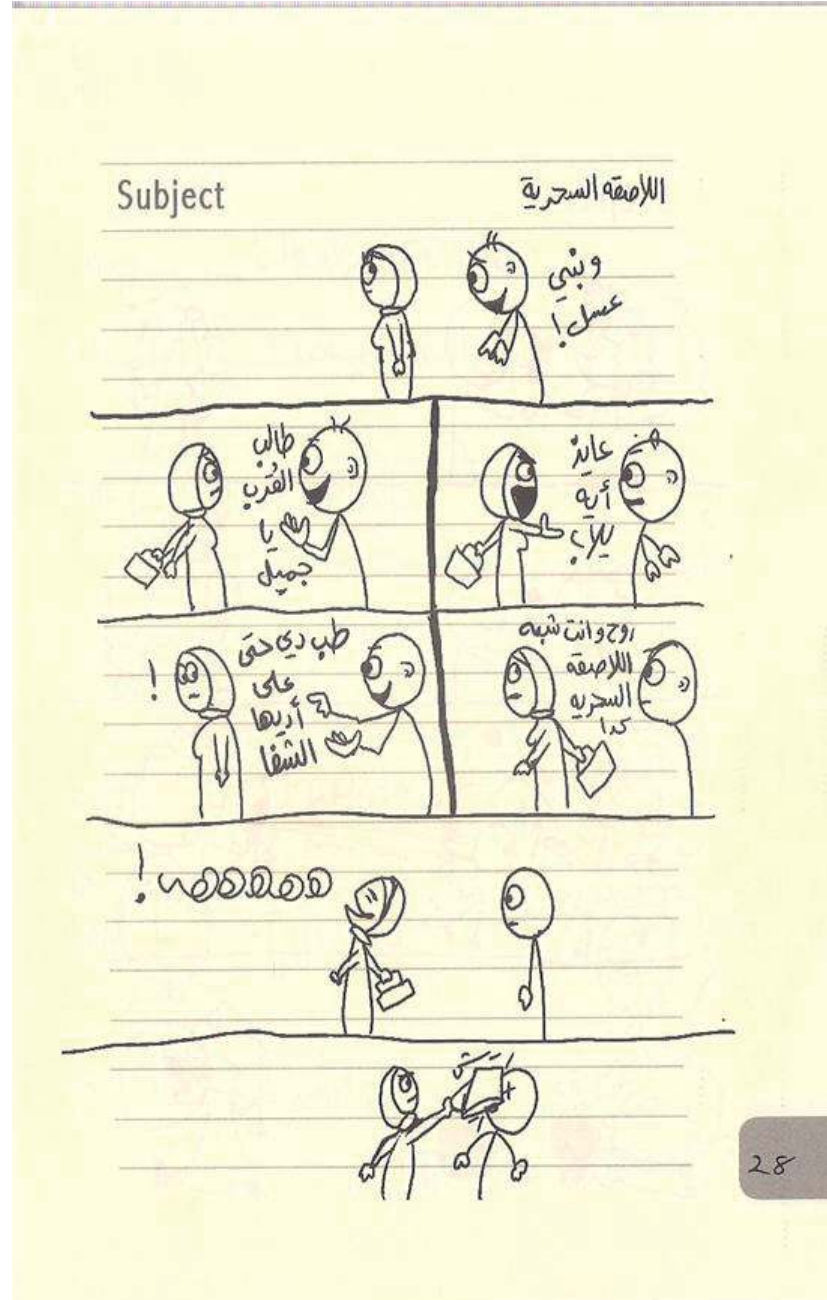 Subject
اللاصقه السحرية
وبنبي
عسل!
عايز
أيه
يلاب
طالب
القُرب
يا
جميل
روح وانت شبه
اللاصقه
السحريه
كدا
طب دي حتى
على
أديها
الشفا
!
!
28